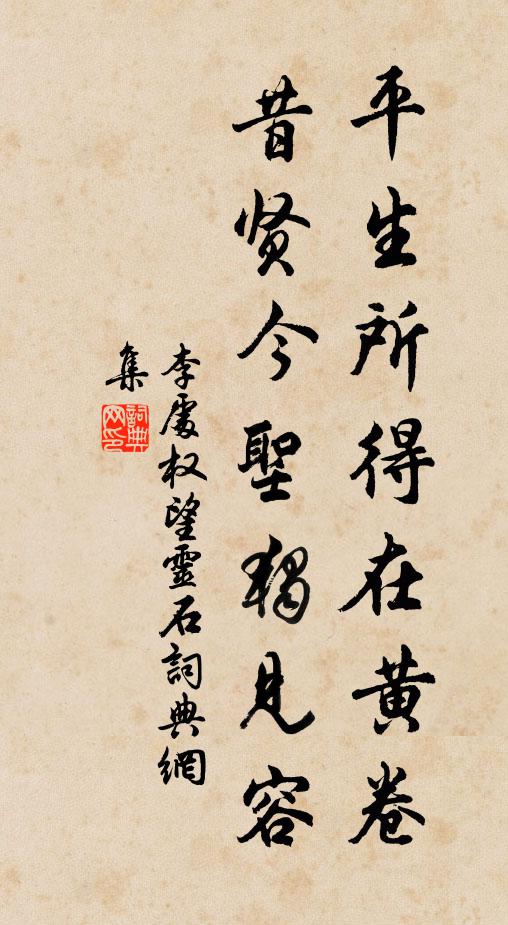 平生所得在黄卷
昔贤今聖獨見容
李處权望靈石詞典網
集
詞典网印